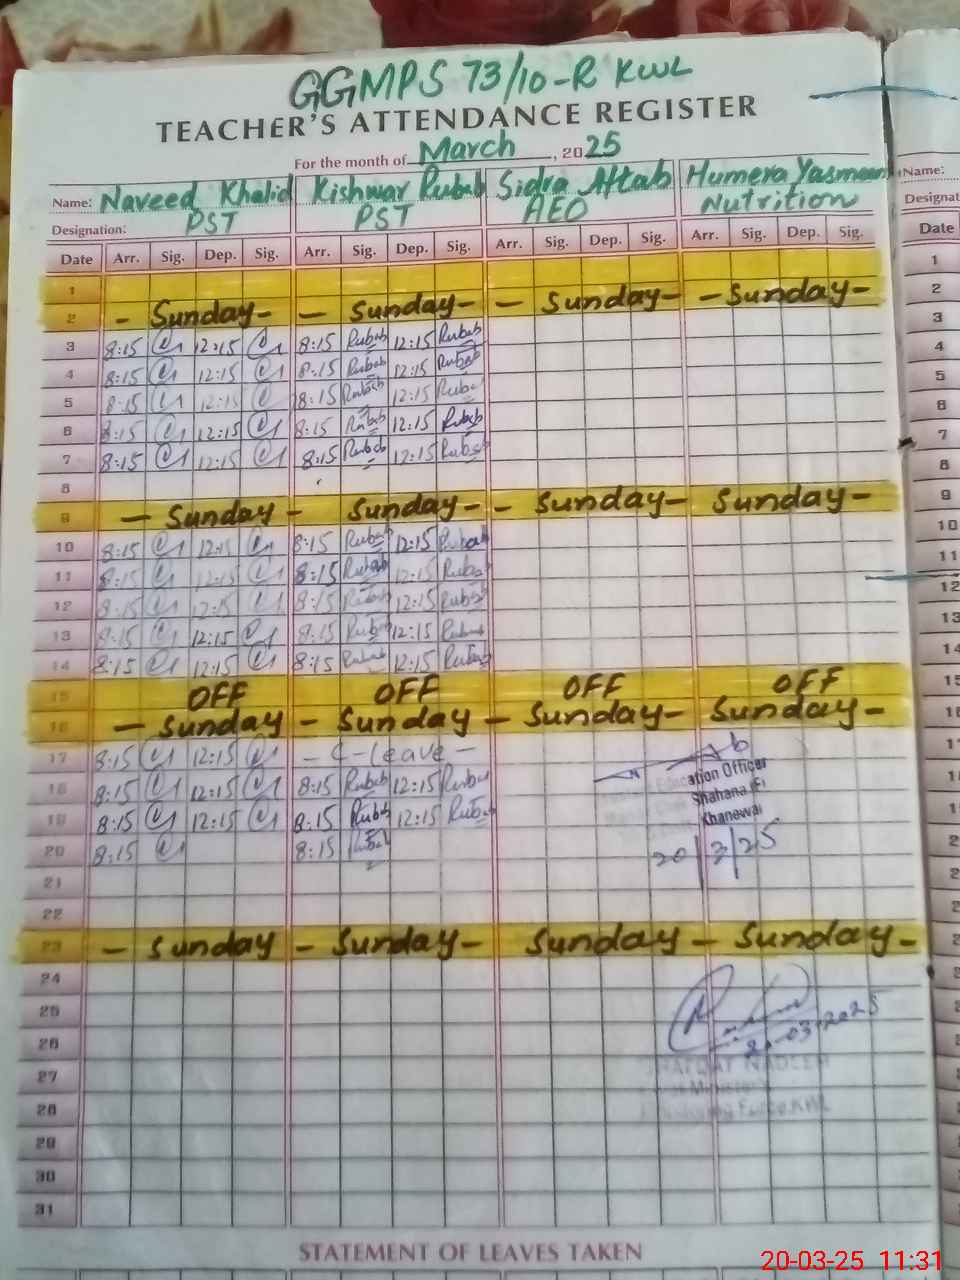 GGMPS 73/10-R KWL
TEACHER'S ATTENDANCE REGISTER
For the month of March, 2025
Name: Naveed Khalid Kishwar Rubab Sidra Aftab Humera Yasmeen Name:
Designation: PST PST AEO Nutrition Designat
Date Arr. Sig. Dep. Sig. Arr. Sig. Dep. Sig. Arr. Sig. Dep. Sig. Arr. Sig. Dep. Sig. Date
1 1
2 - Sunday - - Sunday - - Sunday - - Sunday - 2
3 8:15 12:15 8:15 Rubab 12:15 Rubab 3
4 8:15 12:15 8:15 Rubab 12:15 Rubab 4
5 8:15 12:15 8:15 Rubab 12:15 Rubab 5
6 8:15 12:15 8:15 Rubab 12:15 Rubab 6
7 8:15 12:15 8:15 Rubab 12:15 Rubab 7
8 8
9 - Sunday - Sunday - - Sunday - Sunday - 9
10 8:15 12:15 8:15 Rubab 12:15 Rubab 10
11 8:15 12:15 8:15 Rubab 12:15 Rubab 11
12 8:15 12:15 8:15 Rubab 12:15 Rubab 12
13 8:15 12:15 8:15 Rubab 12:15 Rubab 13
14 8:15 12:15 8:15 Rubab 12:15 Rubab 14
15 OFF OFF OFF OFF 15
16 - Sunday - Sunday - Sunday - Sunday -
17 8:15 12:15 - C-Leave -
18 8:15 12:15 8:15 Rubab 12:15 Rubab
19 8:15 12:15 8:15 Rubab 12:15 Rubab
20 8:15 8:15 Rubab
Education Officer
Khanewal
20/3/25
21
22
23 - Sunday - Sunday - Sunday - Sunday -
24
25
26
03-2025
27
28
29
30
31
STATEMENT OF LEAVES TAKEN
20-03-25 11:31